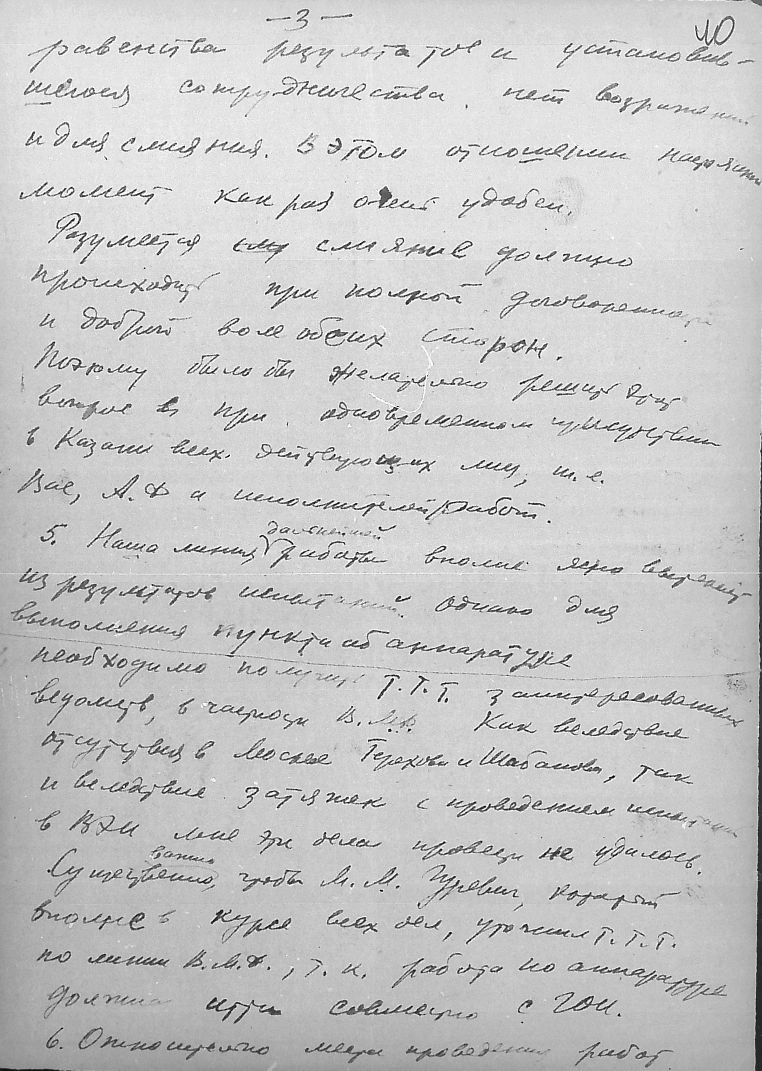 —3—
10
равенства результатов и установив-
шегося сотрудничества нет возражений
и для слияния. В этом отношении
момент как раз очень удобен.
Разумеется слияние должно
происходить при полной договоренности
и доброй воле обеих сторон.
Поэтому было бы желательно решить этот
вопрос при одновременном присутствии
в Казани всех действующих лиц, т.е.
Вас, А.Ф и исполнителей работ.
5. Наша линия дальнейшей работы вполне ясно
из результатов испытаний. Однако для
выполнения пункта об аппаратуре
необходимо получить Т.Т.Т. заинтересованных
ведомств, в частности В.М.Ф. Как вследствие
отсутствия в Москве Терехова и Шабанова, так
и вследствие затяжек с проведением испытаний
в ВЭИ мне эти дела провести не удалось.
Существенно, чтобы М. М. Гуревич, который
вполне в курсе всех дел, уточнил Т.Т.Т.
по линии В.М.Ф., т.к. работа по аппаратуре
должна итти совместно с ГОИ.
6. Относительно места проведения работ